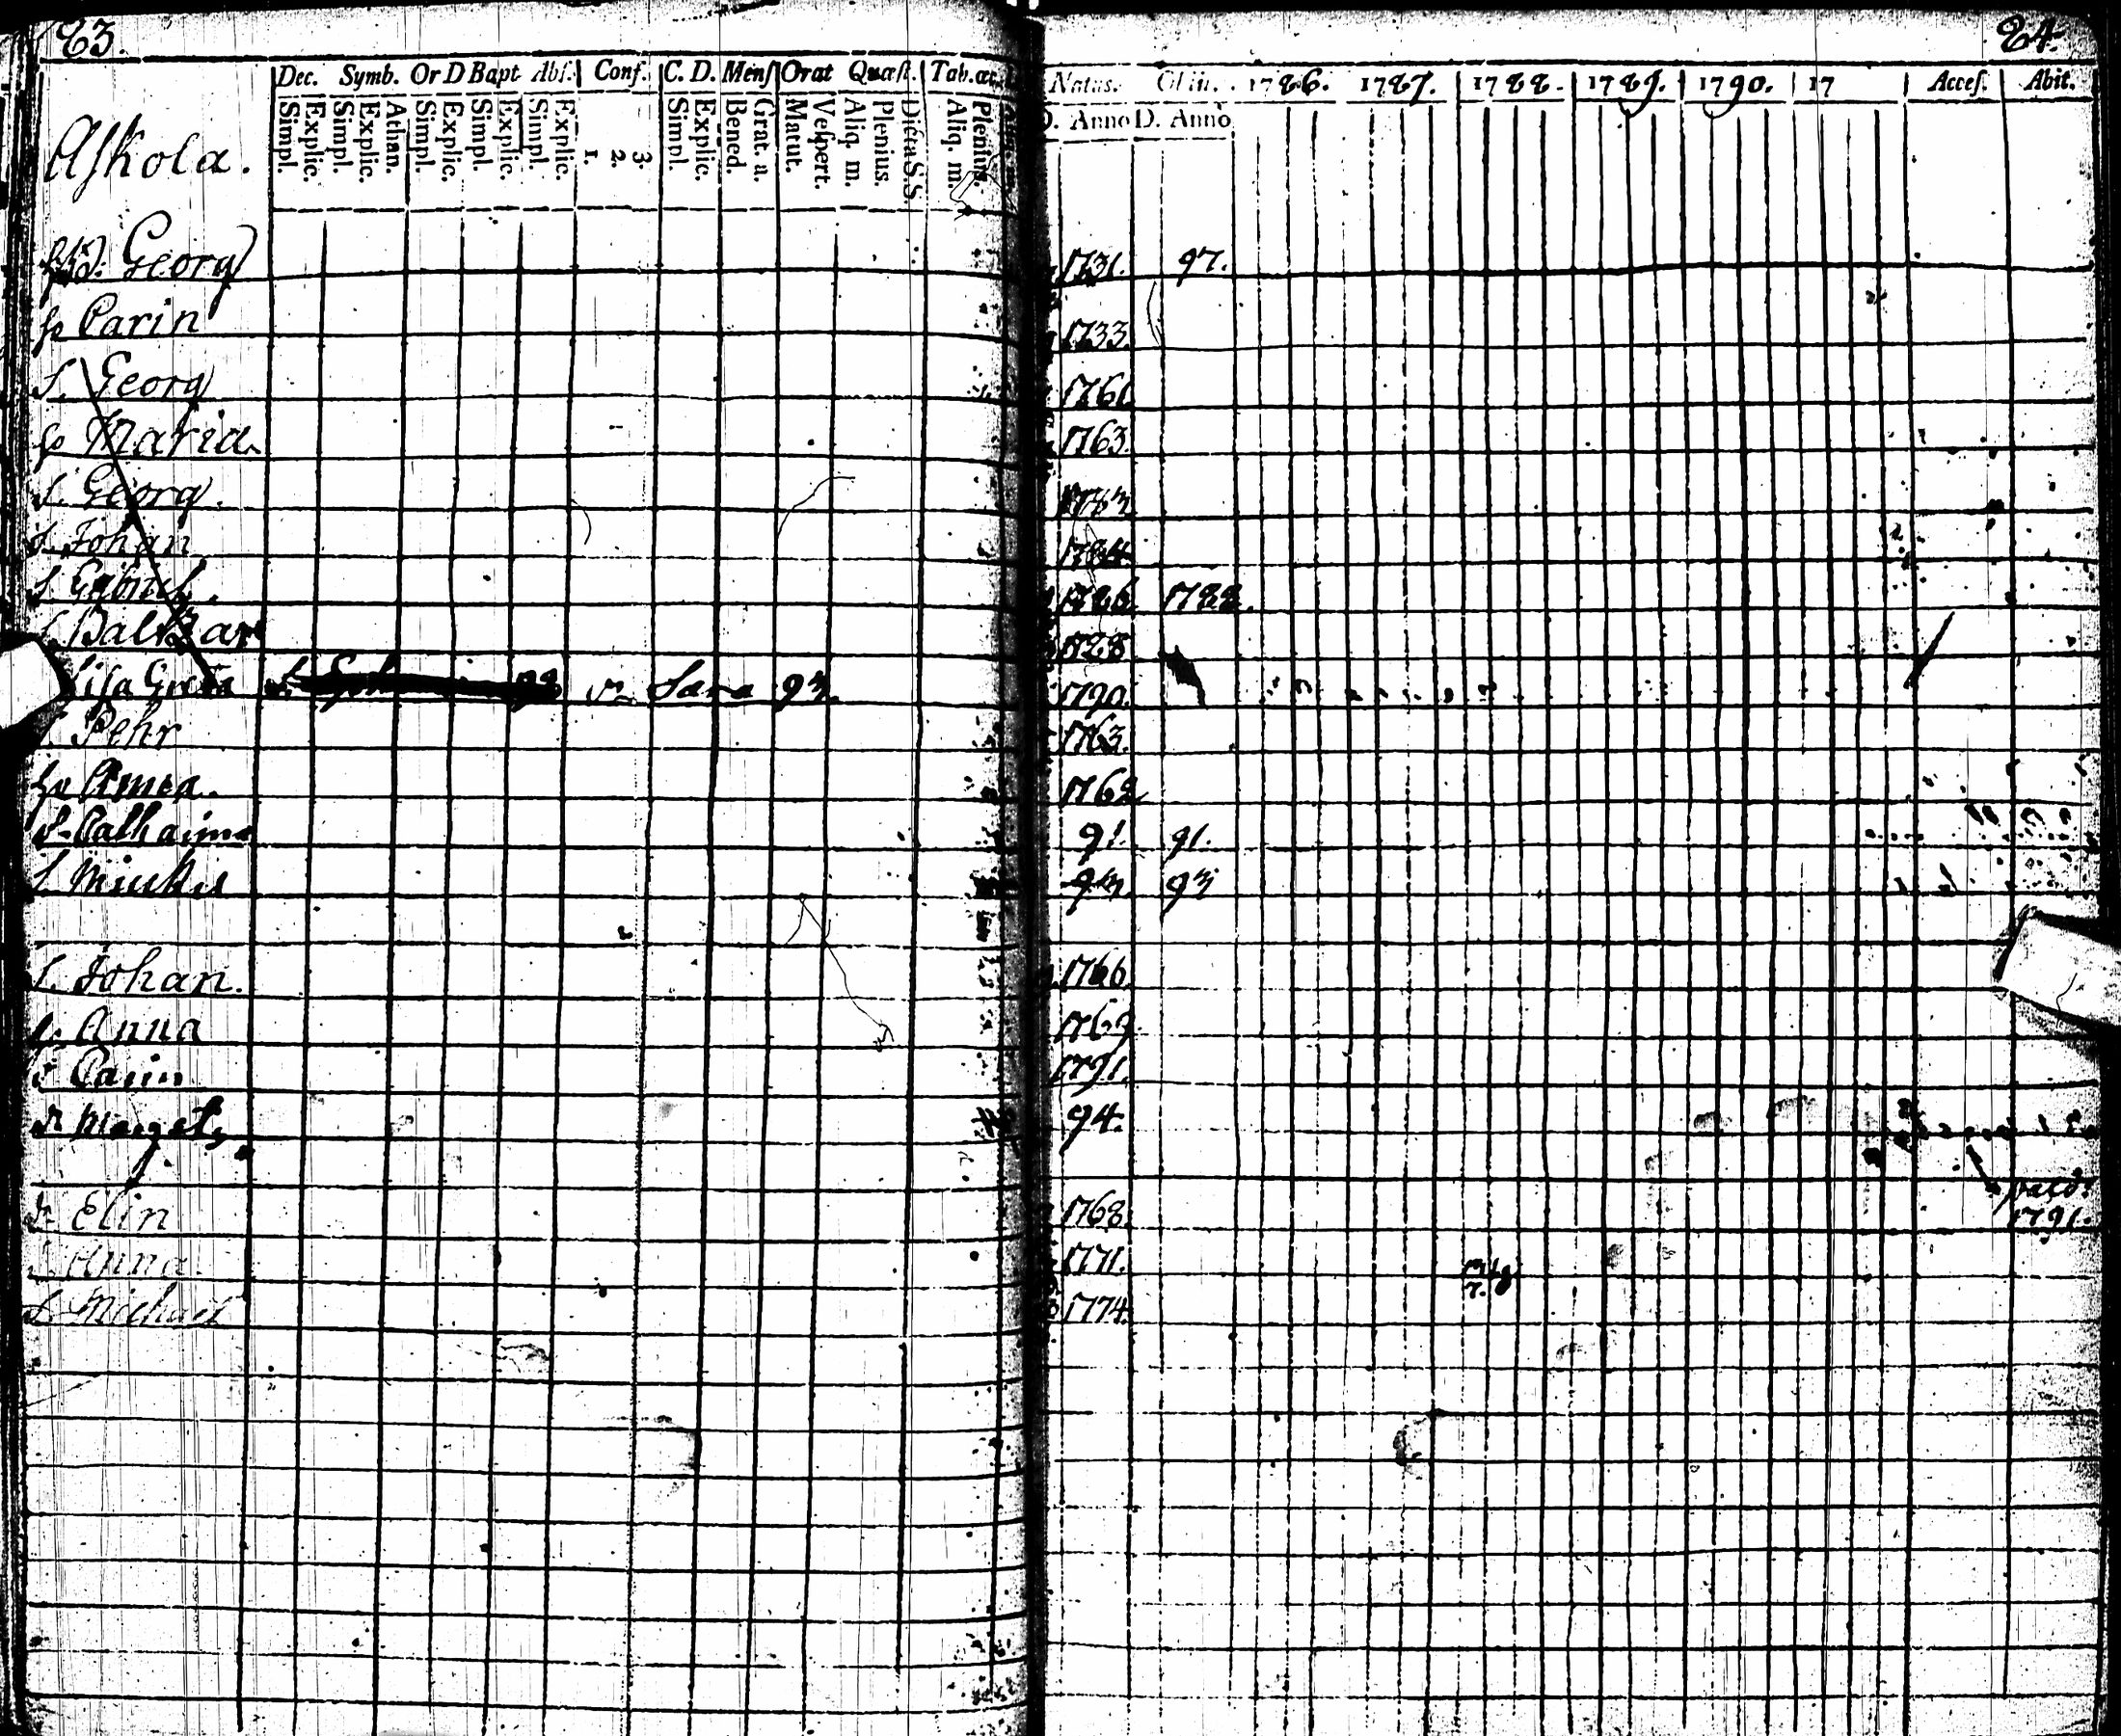 83. 84.
Dec. Symb. Or D Bapt Abſ. Conf. C. D. Menſ Orat Quæſt. Tab. œc. Natus. Obiit. 1786. 1787. 1788. 1789. 1790. 17 Acceſ. Abit.
Simpl. Explic. Simpl. Explic. Athan. Simpl. Explic. Simpl. Explic. Simpl. Explic. 1. 2. 3. Simpl. Explic. Bened. Grat. a. Matut. Veſpert. Aliq. m. Plenius. Dicta S.S. Aliq. m. Plenius. D. Anno D. Anno
Aſkola.
Georg 1731. 97.
hu Carin 1733.
S. Georg 1761
hu Maria 1763.
S. Georg. 1783
S. Johan 1784
S. Gabriel. 1786 1788.
S. Baltzar 1788
Liſa Greta D. Sara 93. 1790.
S. Pehr 1763.
hu Anna. 1762
D. Catharina 91. 91.
S. Mickel 93. 93
S. Johan. 1766
hu Anna 1769
D. Carin 1791.
D. Margeta 94.
D. Elin 1768. 1791.
D. Anna. 1771.
S. Michael 1774.